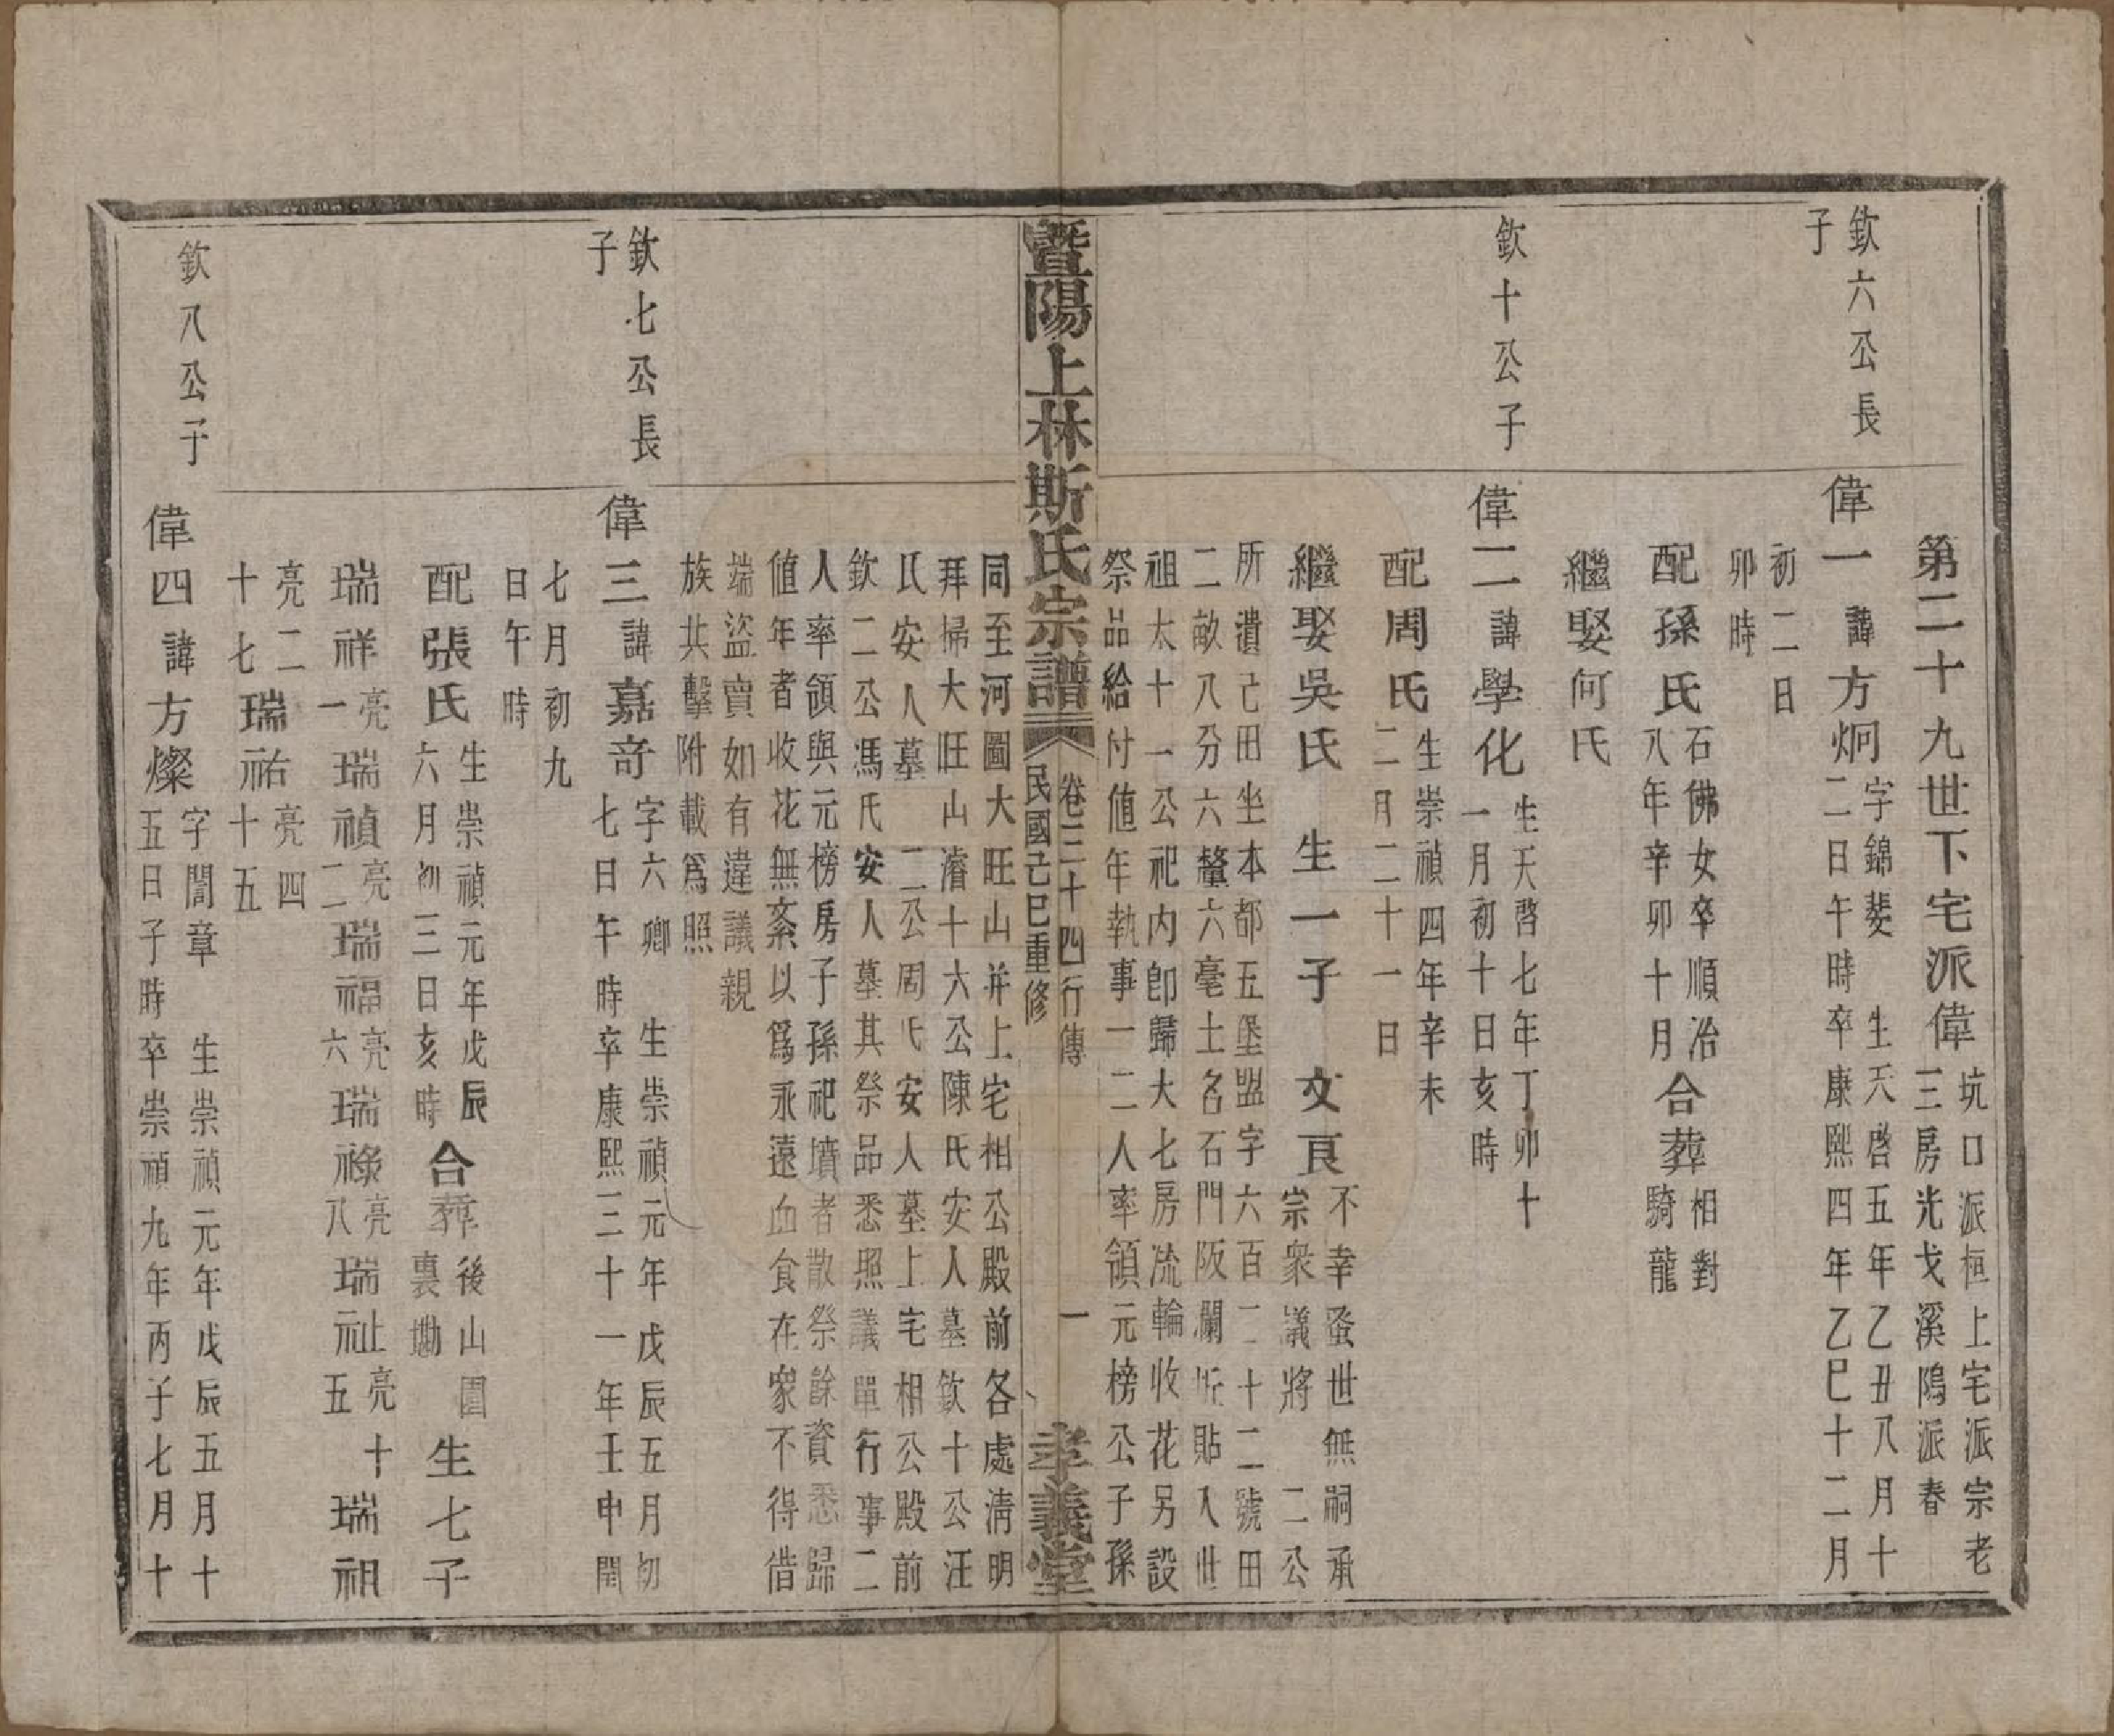 第二十九世下宅派偉 坑口派桓上宅派宗老
三房光戈溪隝派春
欽六公長
子
偉一 諱方炯 字錦斐 生天啓五年乙丑八月十
二日午時卒康熙四年乙巳十二月
初二日
卯時
配孫氏 石佛女卒順治
八年辛卯十月 合葬 相對
騎龍
繼娶何氏
欽十公子
偉二 諱學化 生天啓七年丁卯十
一月初十日亥時
配周氏 生崇禎四年辛未
二月二十一日
繼娶吳氏 生一子 文良 不幸蚤世無嗣承
宗衆議將 二公
所遺己田坐本都五堡盟字六百二十二號田
二畝八分六釐六毫土名石門阪瀾斦貼入世
祖太十一公祀內卽歸大七房流輪收花另設
祭品給付値年執事一二人率領元榜公子孫
暨陽上林斯氏宗譜
卷三十四行傳 一
民國己巳重修
孝義堂
同至河圖大旺山并上宅相公殿前各處淸明
拜掃大旺山濬十六公陳氏安人墓欽十公汪
氏安人墓 二公周氏安人墓上宅相公殿前
欽二公馮氏安人墓其祭品悉照議單行事二
人率領與元榜房子孫祀墳者散祭餘資悉歸
値年者收花無紊以爲永遠血食在衆不得借
端盜賣如有違議親
族共擊附載爲照
欽七公長
子
偉三 諱嘉奇 字六卿 生崇禎元年戊辰五月初
七日午時卒康熙三十一年壬申閏
七月初九
日午時
配張氏 生崇禎元年戊辰
六月初三日亥時 合葬 後山園
裏塢 生七子
瑞祥 亮
一 瑞禎 亮
二 瑞福 亮
六 瑞祿 亮
八 瑞祉 亮十
五 瑞祖
亮二
十七 瑞祐 亮四
十五
欽八公子
偉四 諱方燦 字誾章 生崇禎元年戊辰五月十
五日子時卒崇禎九年丙子七月十